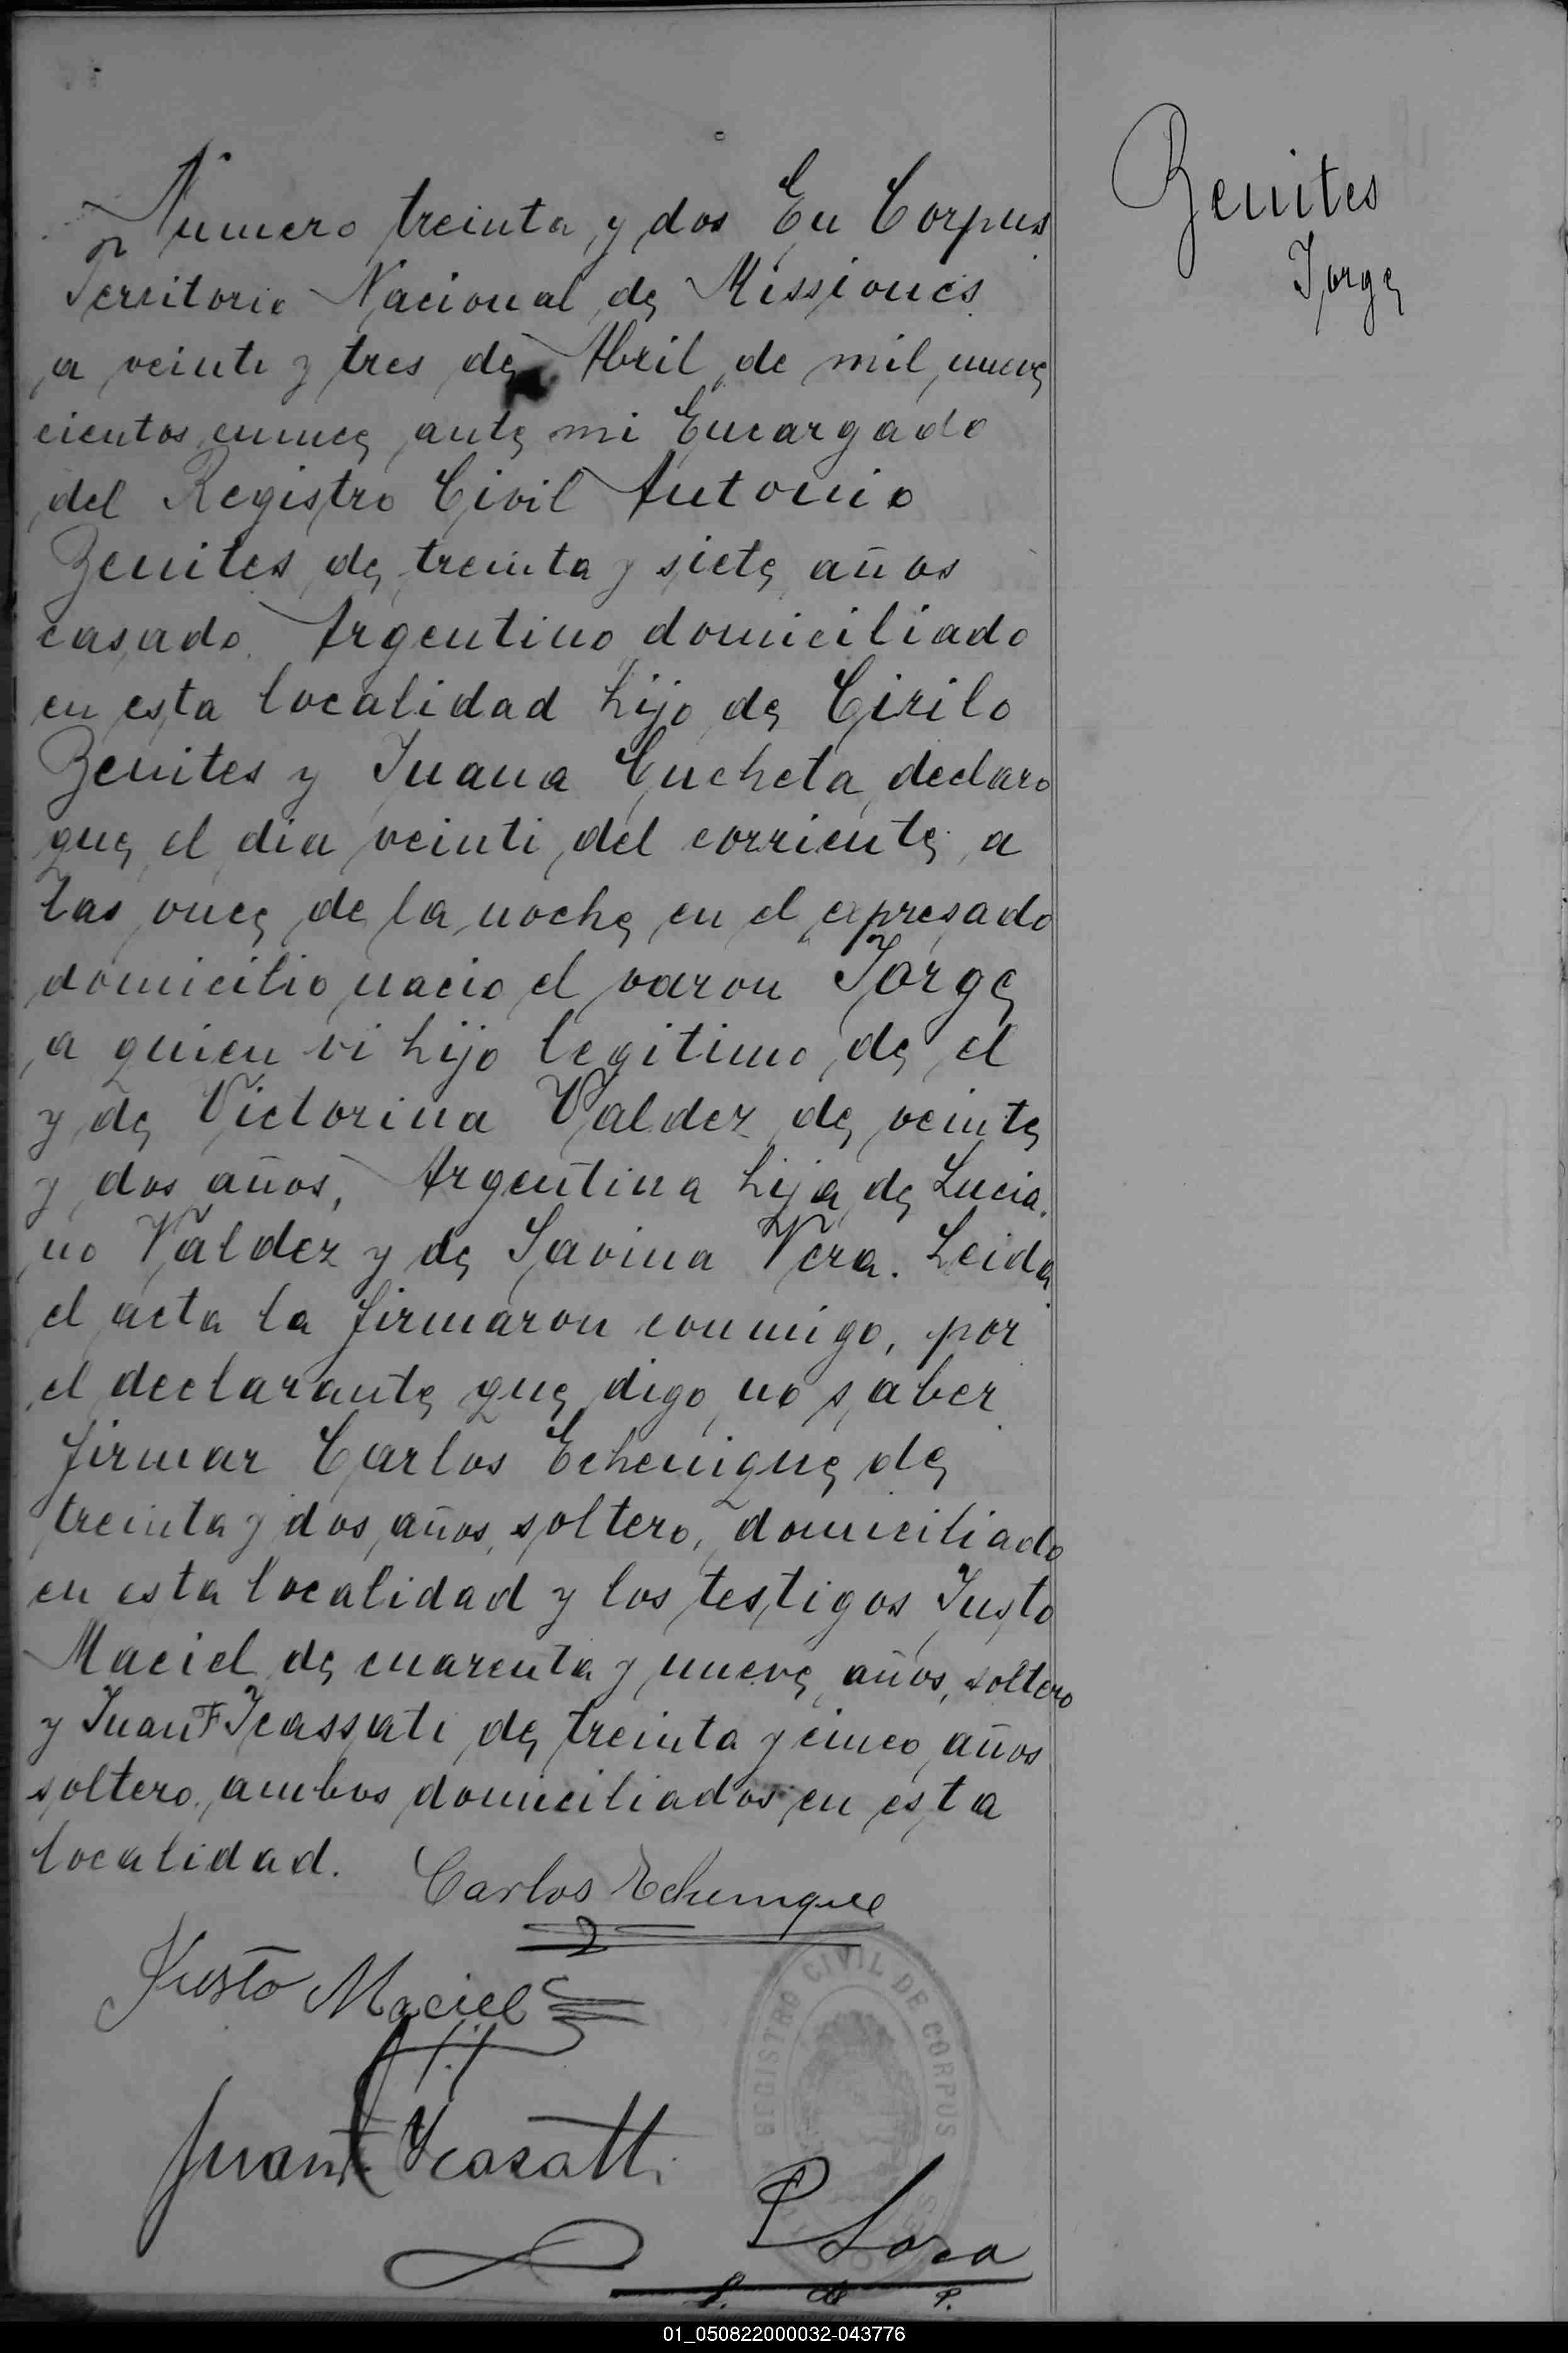 Benites
Jorge
Numero treinta y dos En Corpus
Territorio Nacional de Missiones
a veinti y tres de Abril de mil nueve
cientos nueve ante mi Encargado
del Registro Civil Antonio
Benites de treinta y siete años
casado. Argentino domiciliado
en esta localidad hijo de Cirilo
Benites y Juana Encheta declaro
que el dia veinti del corriente a
las once de la noche en el expresado
domicilio nacio el varon Jorge
a quien vi hijo legitimo de el
y de Victorina Valdez de veinte
y dos años, Argentina hija de Lucia
no Valdez y de Savina Vera. Leida
el acta la firmaron conmigo, por
el declarante que digo no saber
firmar Carlos Echenique de
treinta y dos años, soltero, domiciliado
en esta localidad y los testigos Justo
Maciel de cuarenta y nueve años, soltero
y Juan F Icassati de treinta y cinco años
soltero, ambos domiciliados en esta
localidad.
Carlos Echenique
Justo Maciel
Juan F. Icasatti
REGISTRO CIVIL DE CORPUS
P Sosa
01_050822000032-043776